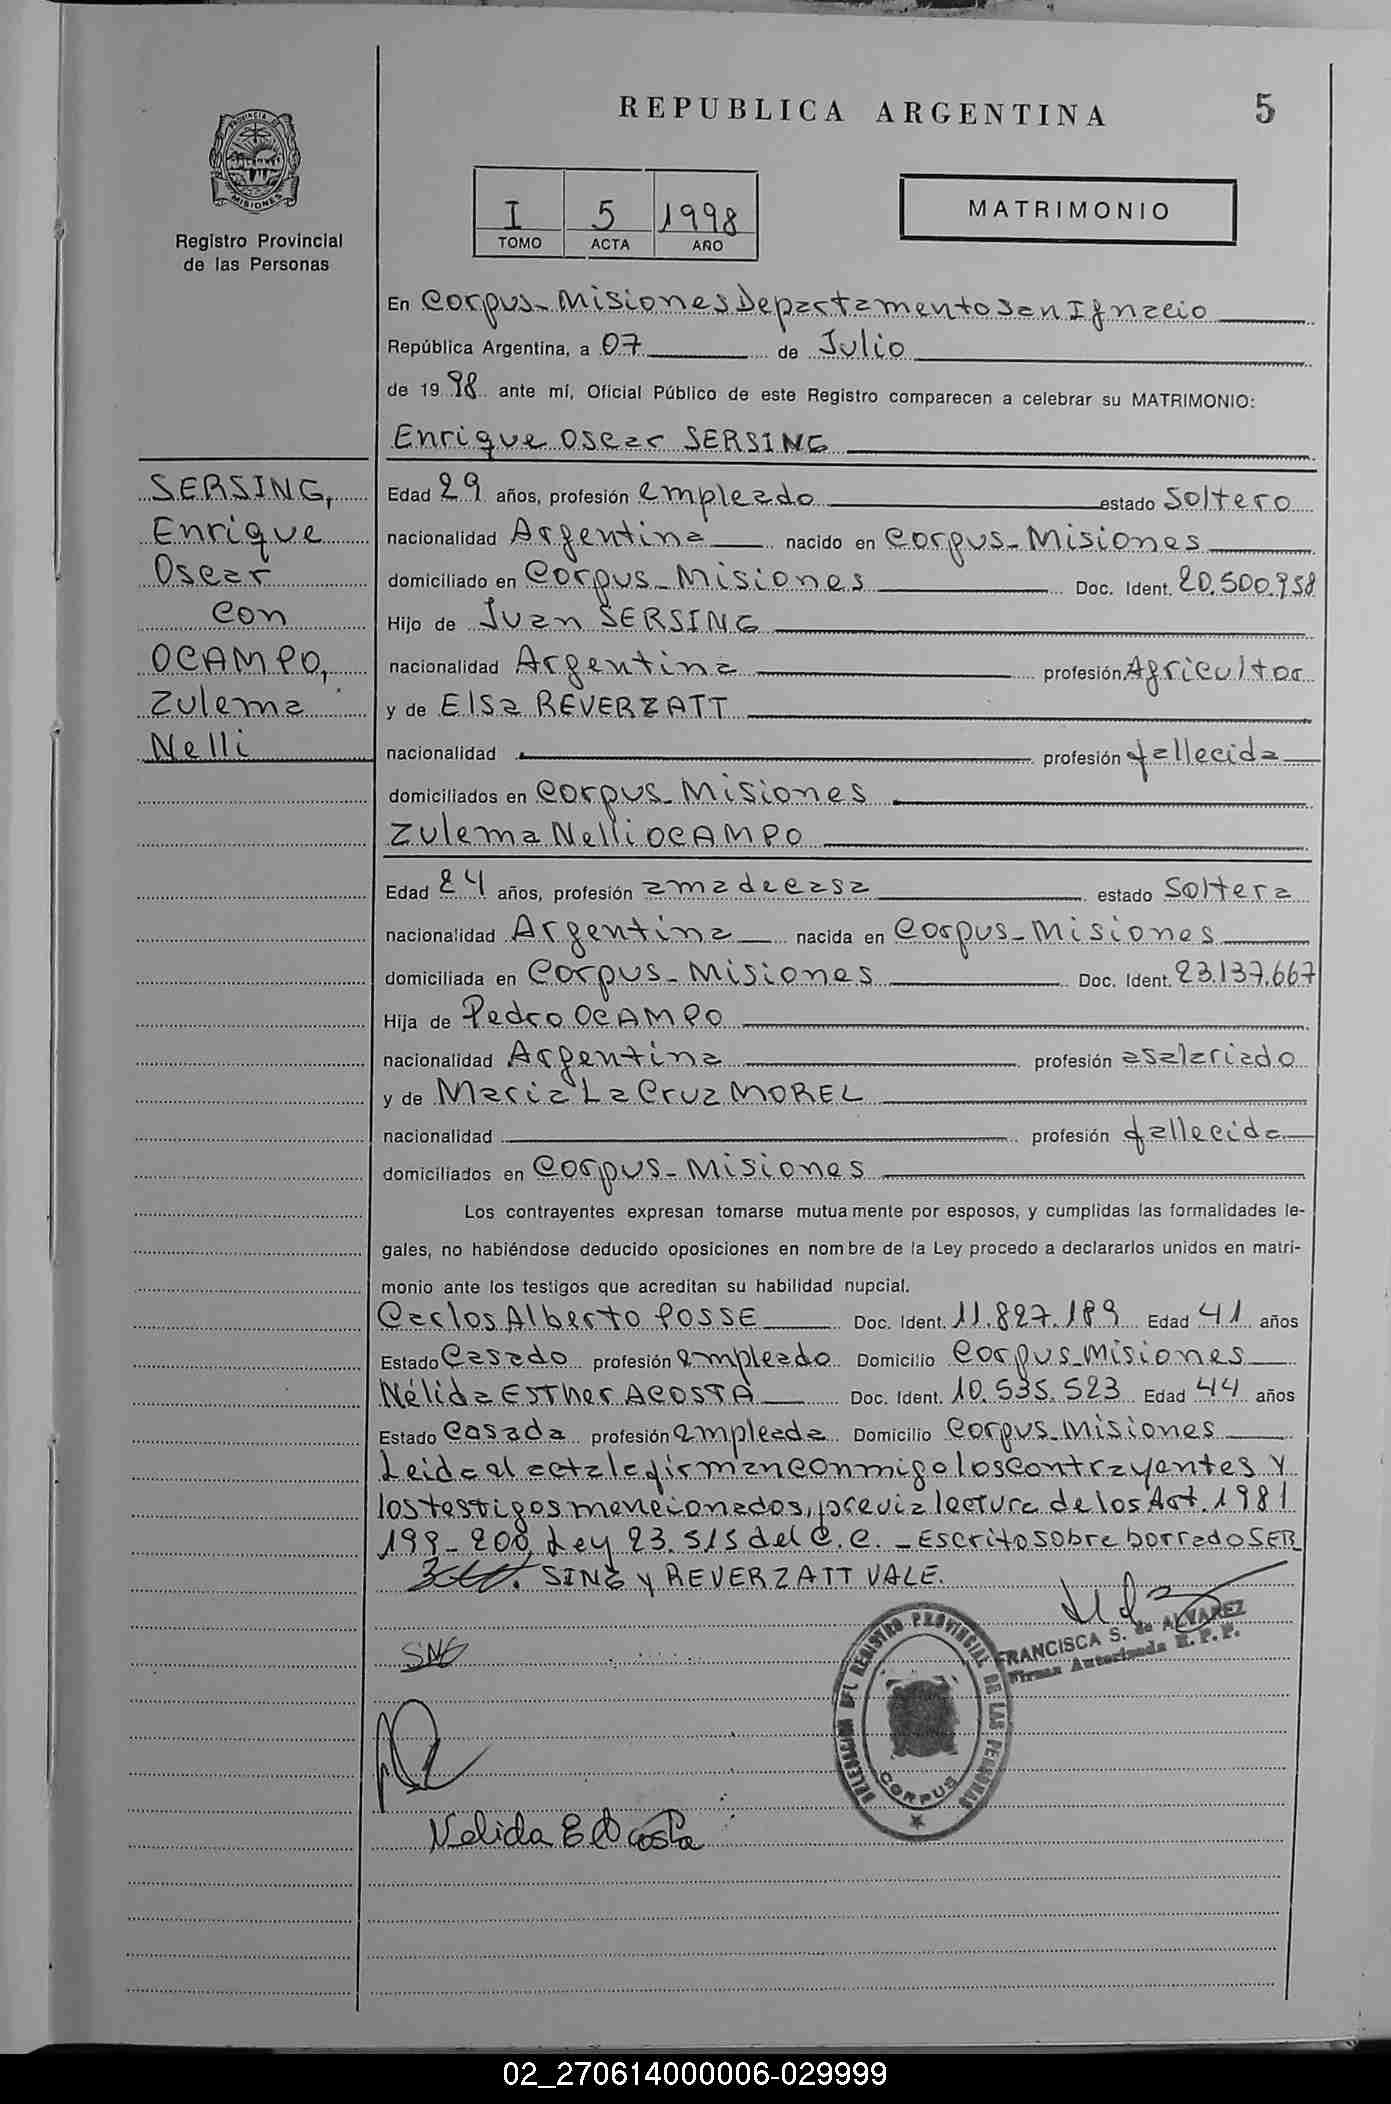 REPUBLICA ARGENTINA
5
PROVINCIA DE
MISIONES
Registro Provincial
de las Personas
I 5 1998
TOMO ACTA AÑO
MATRIMONIO
En Corpus-Misiones Departamento San Ignacio
República Argentina, a 07 de Julio
de 19 98 ante mí, Oficial Público de este Registro comparecen a celebrar su MATRIMONIO:
Enrique Oscar SERSING
SERSING,
Enrique
Oscar
con
OCAMPO,
Zulema
Nelli
Edad 29 años, profesión empleado estado Soltero
nacionalidad Argentina nacido en Corpus-Misiones
domiciliado en Corpus-Misiones Doc. Ident. 20.500.958
Hijo de Juan SERSING
nacionalidad Argentina profesión Agricultor
y de Elsa REVERZATT
nacionalidad profesión fallecida
domiciliados en Corpus-Misiones
Zulema Nelli OCAMPO
Edad 24 años, profesión ama de casa estado Soltera
nacionalidad Argentina nacida en Corpus-Misiones
domiciliada en Corpus-Misiones Doc. Ident. 23.137.667
Hija de Pedro OCAMPO
nacionalidad Argentina profesión asalariado
y de Maria La Cruz MOREL
nacionalidad profesión fallecida
domiciliados en Corpus-Misiones
Los contrayentes expresan tomarse mutuamente por esposos, y cumplidas las formalidades le-
gales, no habiéndose deducido oposiciones en nombre de la Ley procedo a declararlos unidos en matri-
monio ante los testigos que acreditan su habilidad nupcial.
Carlos Alberto POSSE Doc. Ident. 11.827.189 Edad 41 años
Estado Casado profesión empleado Domicilio Corpus-Misiones
Nélida ESTHER ACOSTA Doc. Ident. 10.535.523 Edad 44 años
Estado Casada profesión empleada Domicilio Corpus-Misiones
Leida el acta la firman conmigo los contrayentes y
los testigos mencionados, previa lectura de los Art. 1981
199-200, Ley 23.515 del C.C.-Escrito sobre borrado SER
SING y REVERZATT VALE.
FRANCISCA S. de ALVAREZ
Firma Autorizada R.P.P.
DELEGACION DEL REGISTRO PROVINCIAL DE LAS PERSONAS
CORPUS
Nelida E Acosta
02_270614000006-029999